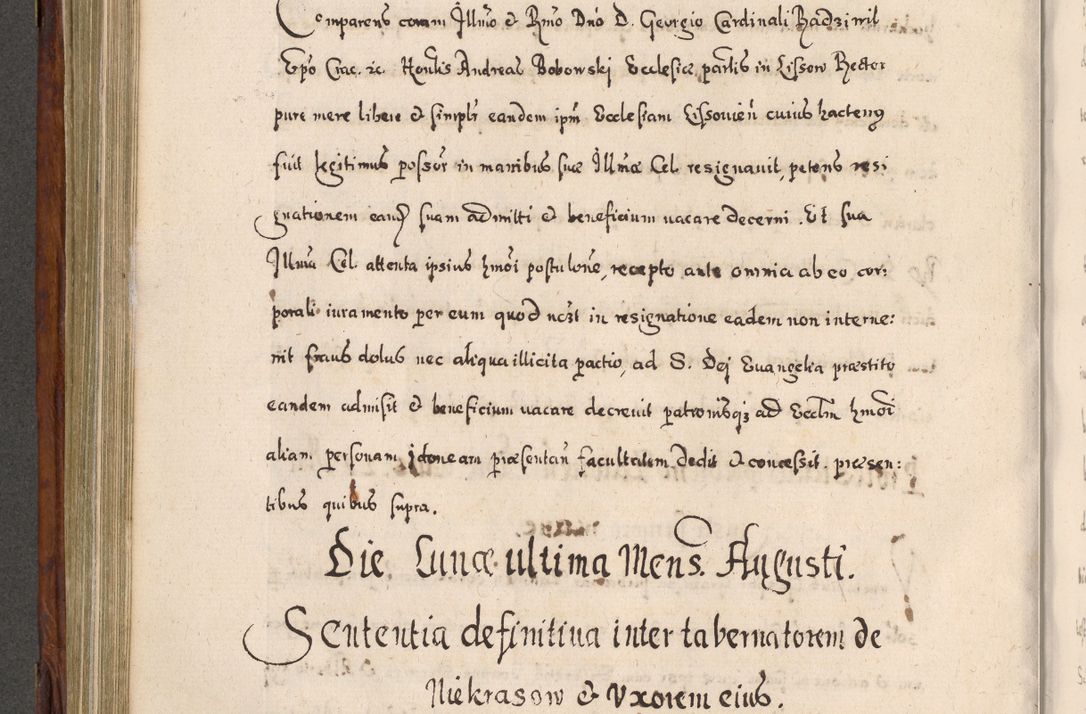 Comparens coram Illmo & Rmo Dno D. Georgio Cardinali Radziwil
Epo Crac. zc. Honlis Andreas Bobowski Ecclesiæ partis in Lissow Rector
pure mere libere & simplr eandem ipm Ecclesiam Lissouien cuius hacteng
fuit legitimus possor in manibus suæ Illmæ Cel. resignauit, petens resi
gnationem eand suam admitti & beneficium uacare decerni. Et sua
Illma Cel. attenta ipsius hmoi postulone, recepto ante omnia ab eo cor:
porali iuramento per eum quod in resignatione eadem non interue:
nit fraus dolus nec aliqua illicita pactio, ad S. Dej Euangelia præstito
eandem admisit & beneficium uacare decreuit patronisq3 ad Ecclm hmoi
aliam personam jdoneam præsentan facultatem dedit & concessit. præsen:
tibus quibus supra.
Die Lunæ ultima Mens. Augusti.
Sententia definitiua inter tabernatorem de
Niekrasow & Uxorem eius.